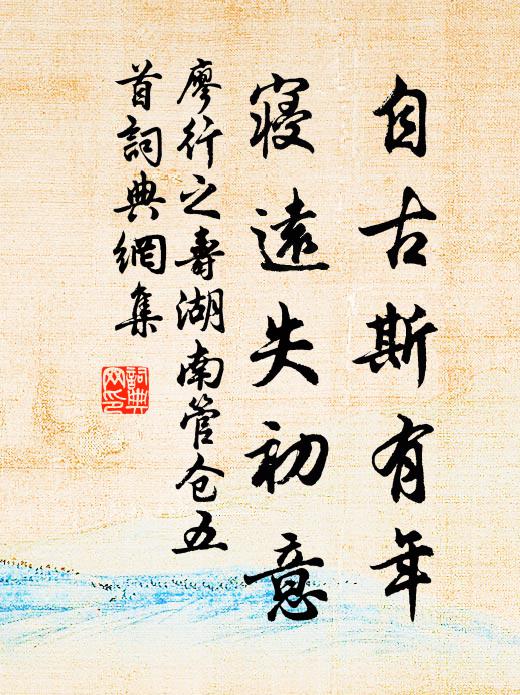 自古斯有年
寝遠失初意
廖行之壽湖南管仓五
首詞典網集
詞典
网印